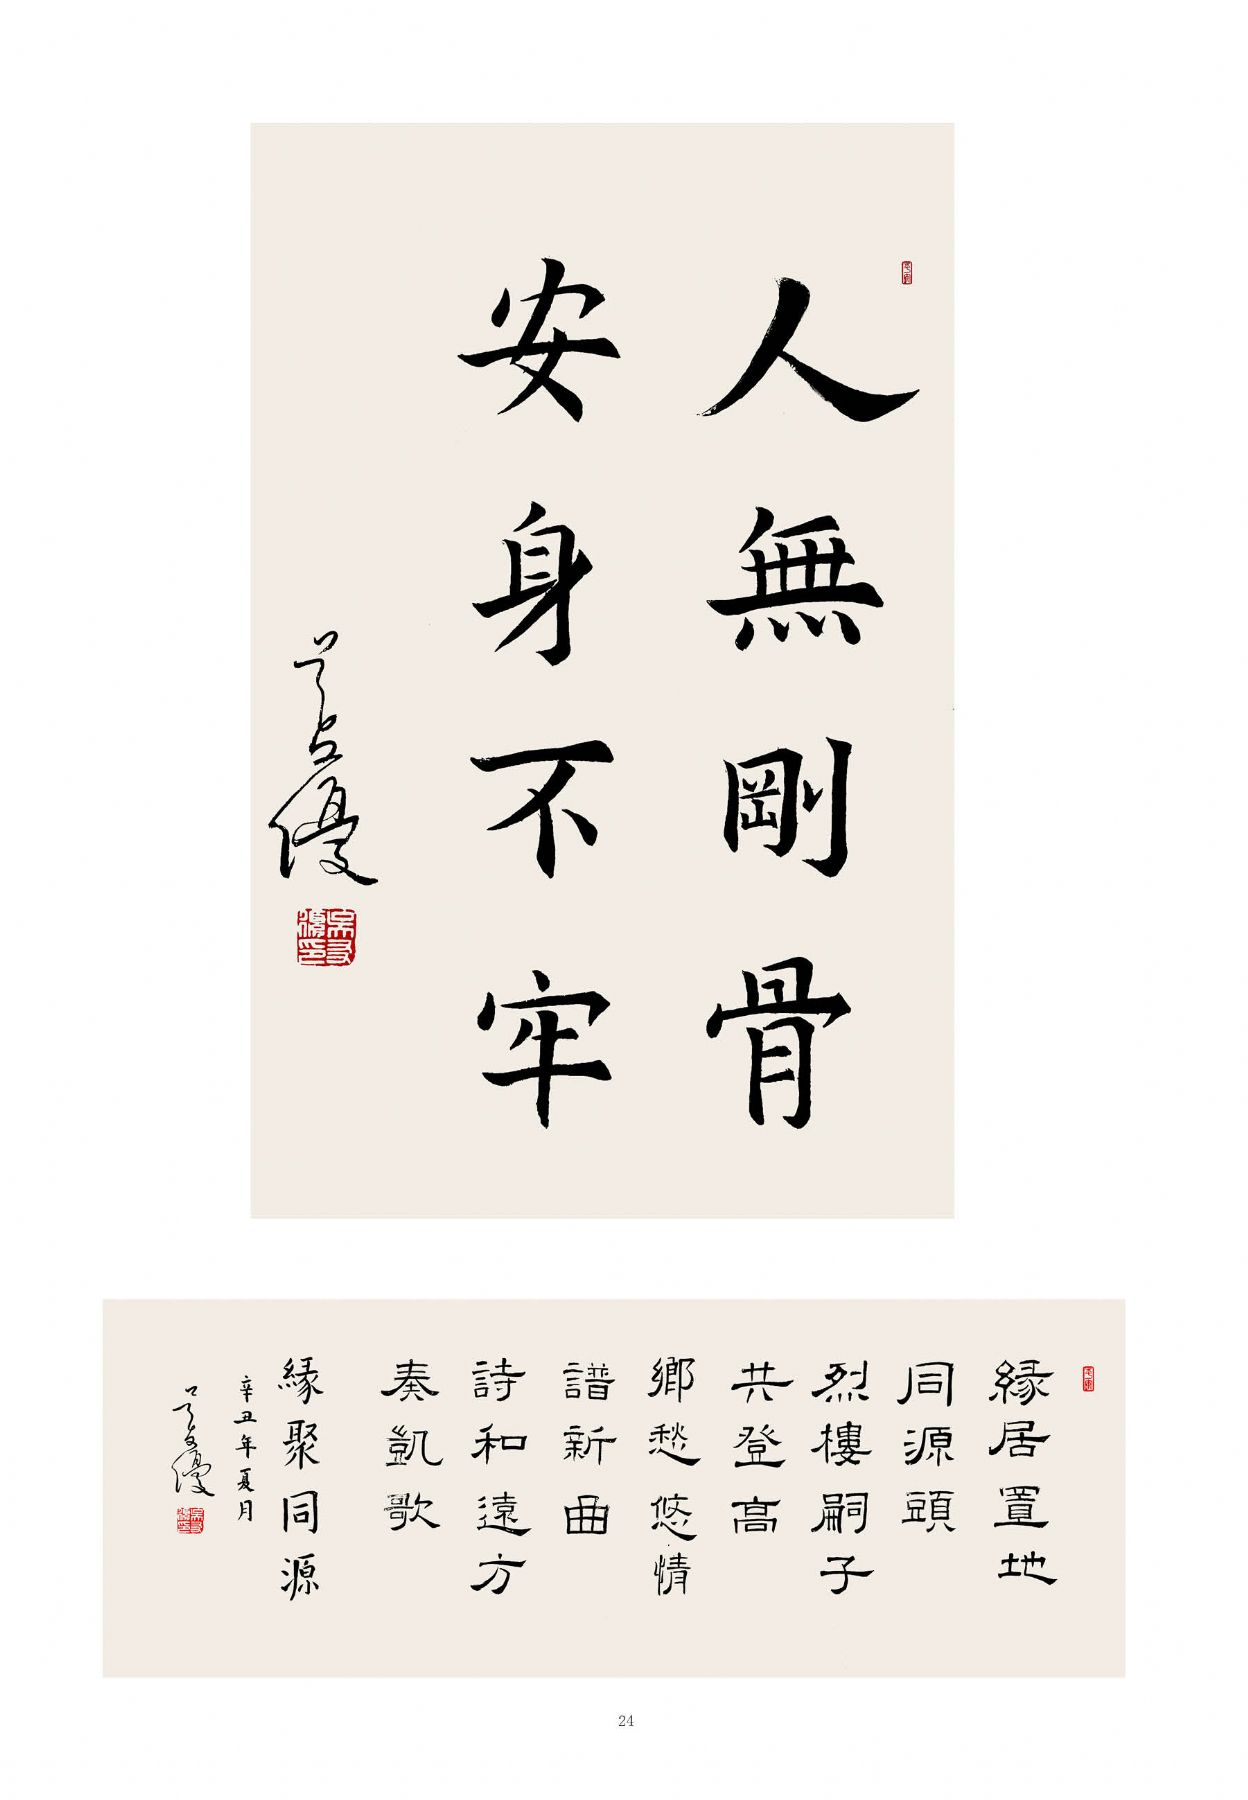 人無剛骨
安身不牢
緣居置地
同源頭
烈樓嗣子
共登高
鄉愁悠情
譜新曲
詩和遠方
奏凱歌
緣聚同源
辛丑年夏月
24